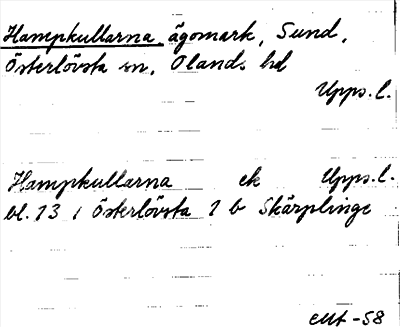 Hampkullarna ägomark, Sund,
Österlövsta sn, Olands hd
Upps. l.
Hampkullarna ek Upps. l.
bl. 13 i Österlövsta 1 b Skärplinge
-58